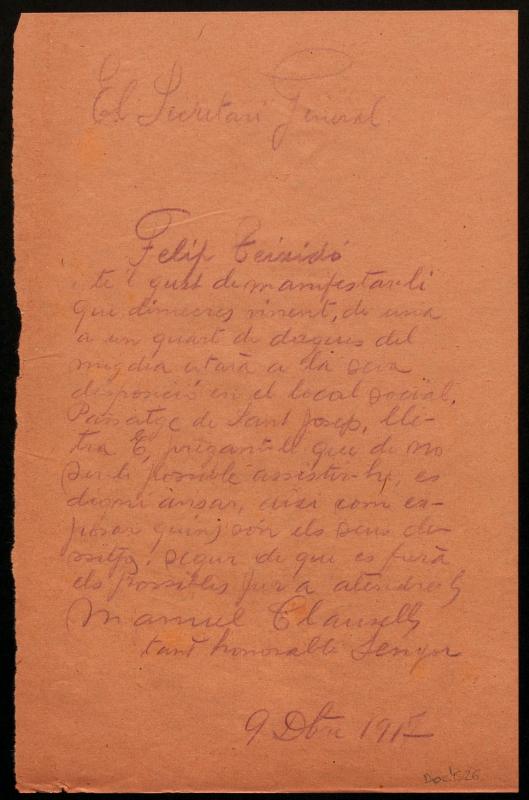 El Secretari General
Felip Teixidó
té 'l gust de manifestarli
que dimecres vinent, de una
a un quart de dugues del
migdia estarà a la seva
disposició en el local social,
Passatge de Sant Josep, lle-
tra E, pregantli que de no
serli possible assistir-hi, es
digni avisar, aixi com ex-
posar quins són els seus de-
sitjs, segur de que es farà
els possibles per a atendrels
Manuel Clausells
tant honorable Senyor
9 Dbre 191
Doc 1526